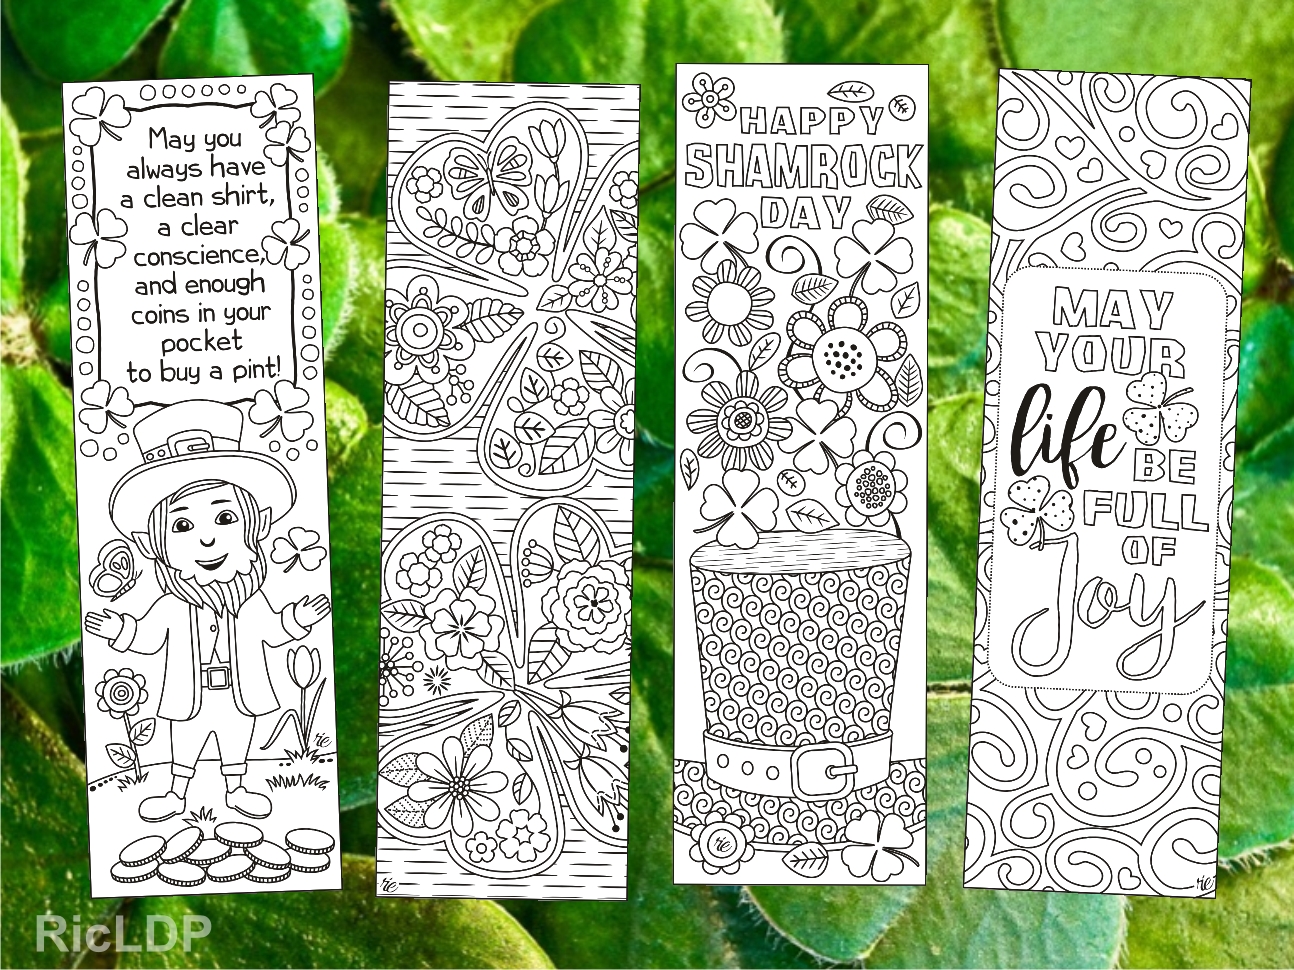 May you
always have
a clean shirt,
a clear
conscience,
and enough
coins in your
pocket
to buy a pint!
ric
ric
HAPPY
SHAMROCK
DAY
ric
MAY
YOUR
life
BE
FULL
OF
Joy
ric
RicLDP